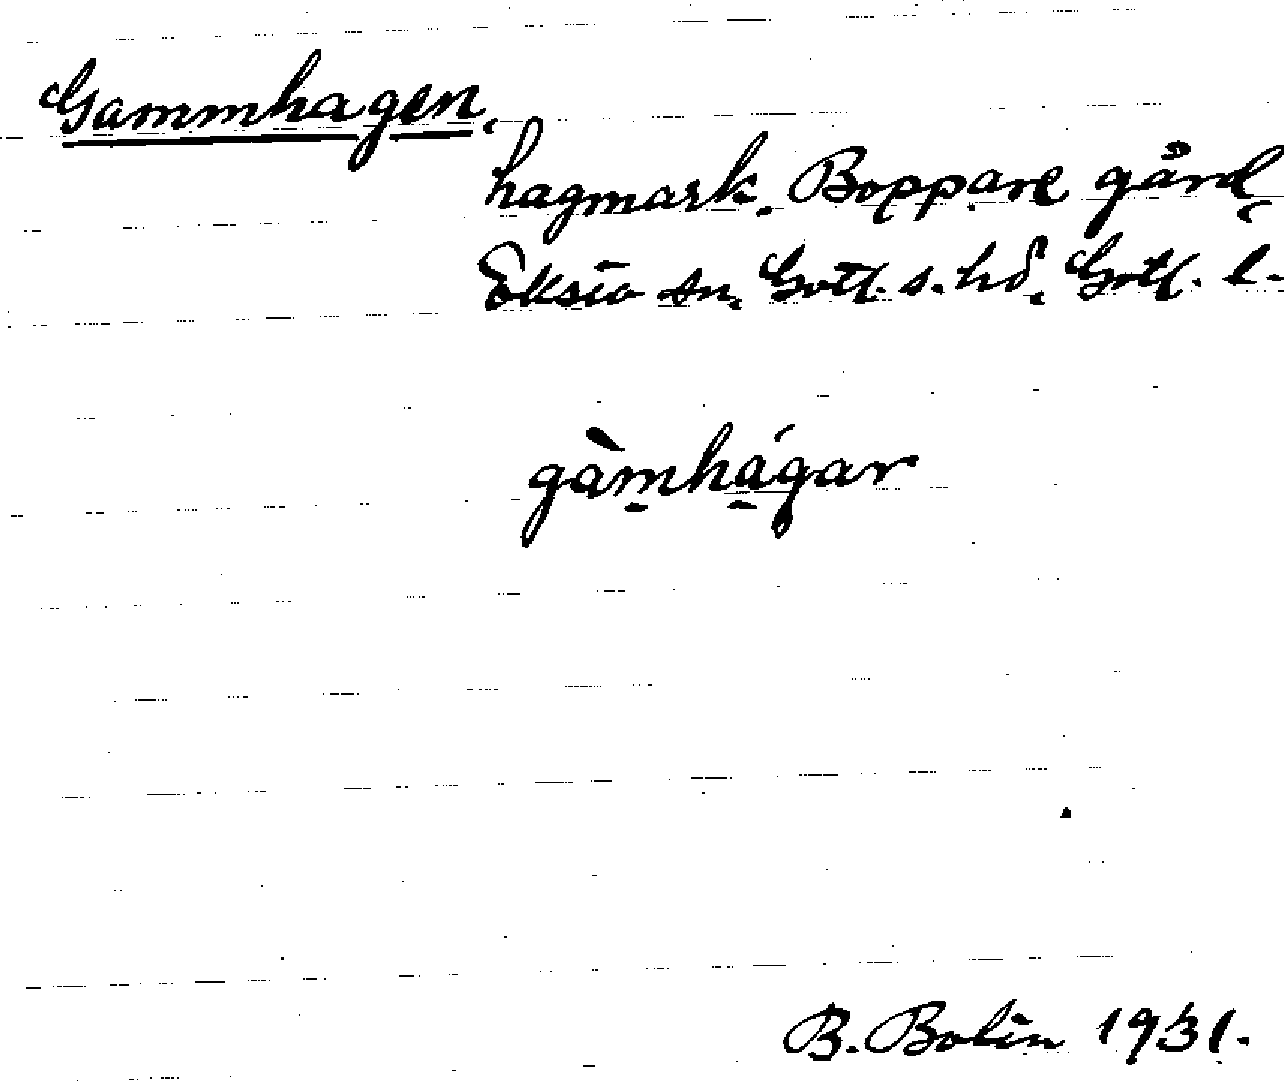 Gammhagen,
hagmark. Boppare gård,
Eksta sn, Gotl. s. hd, Gotl. l.
gàmhágar
B. Bolin 1931.